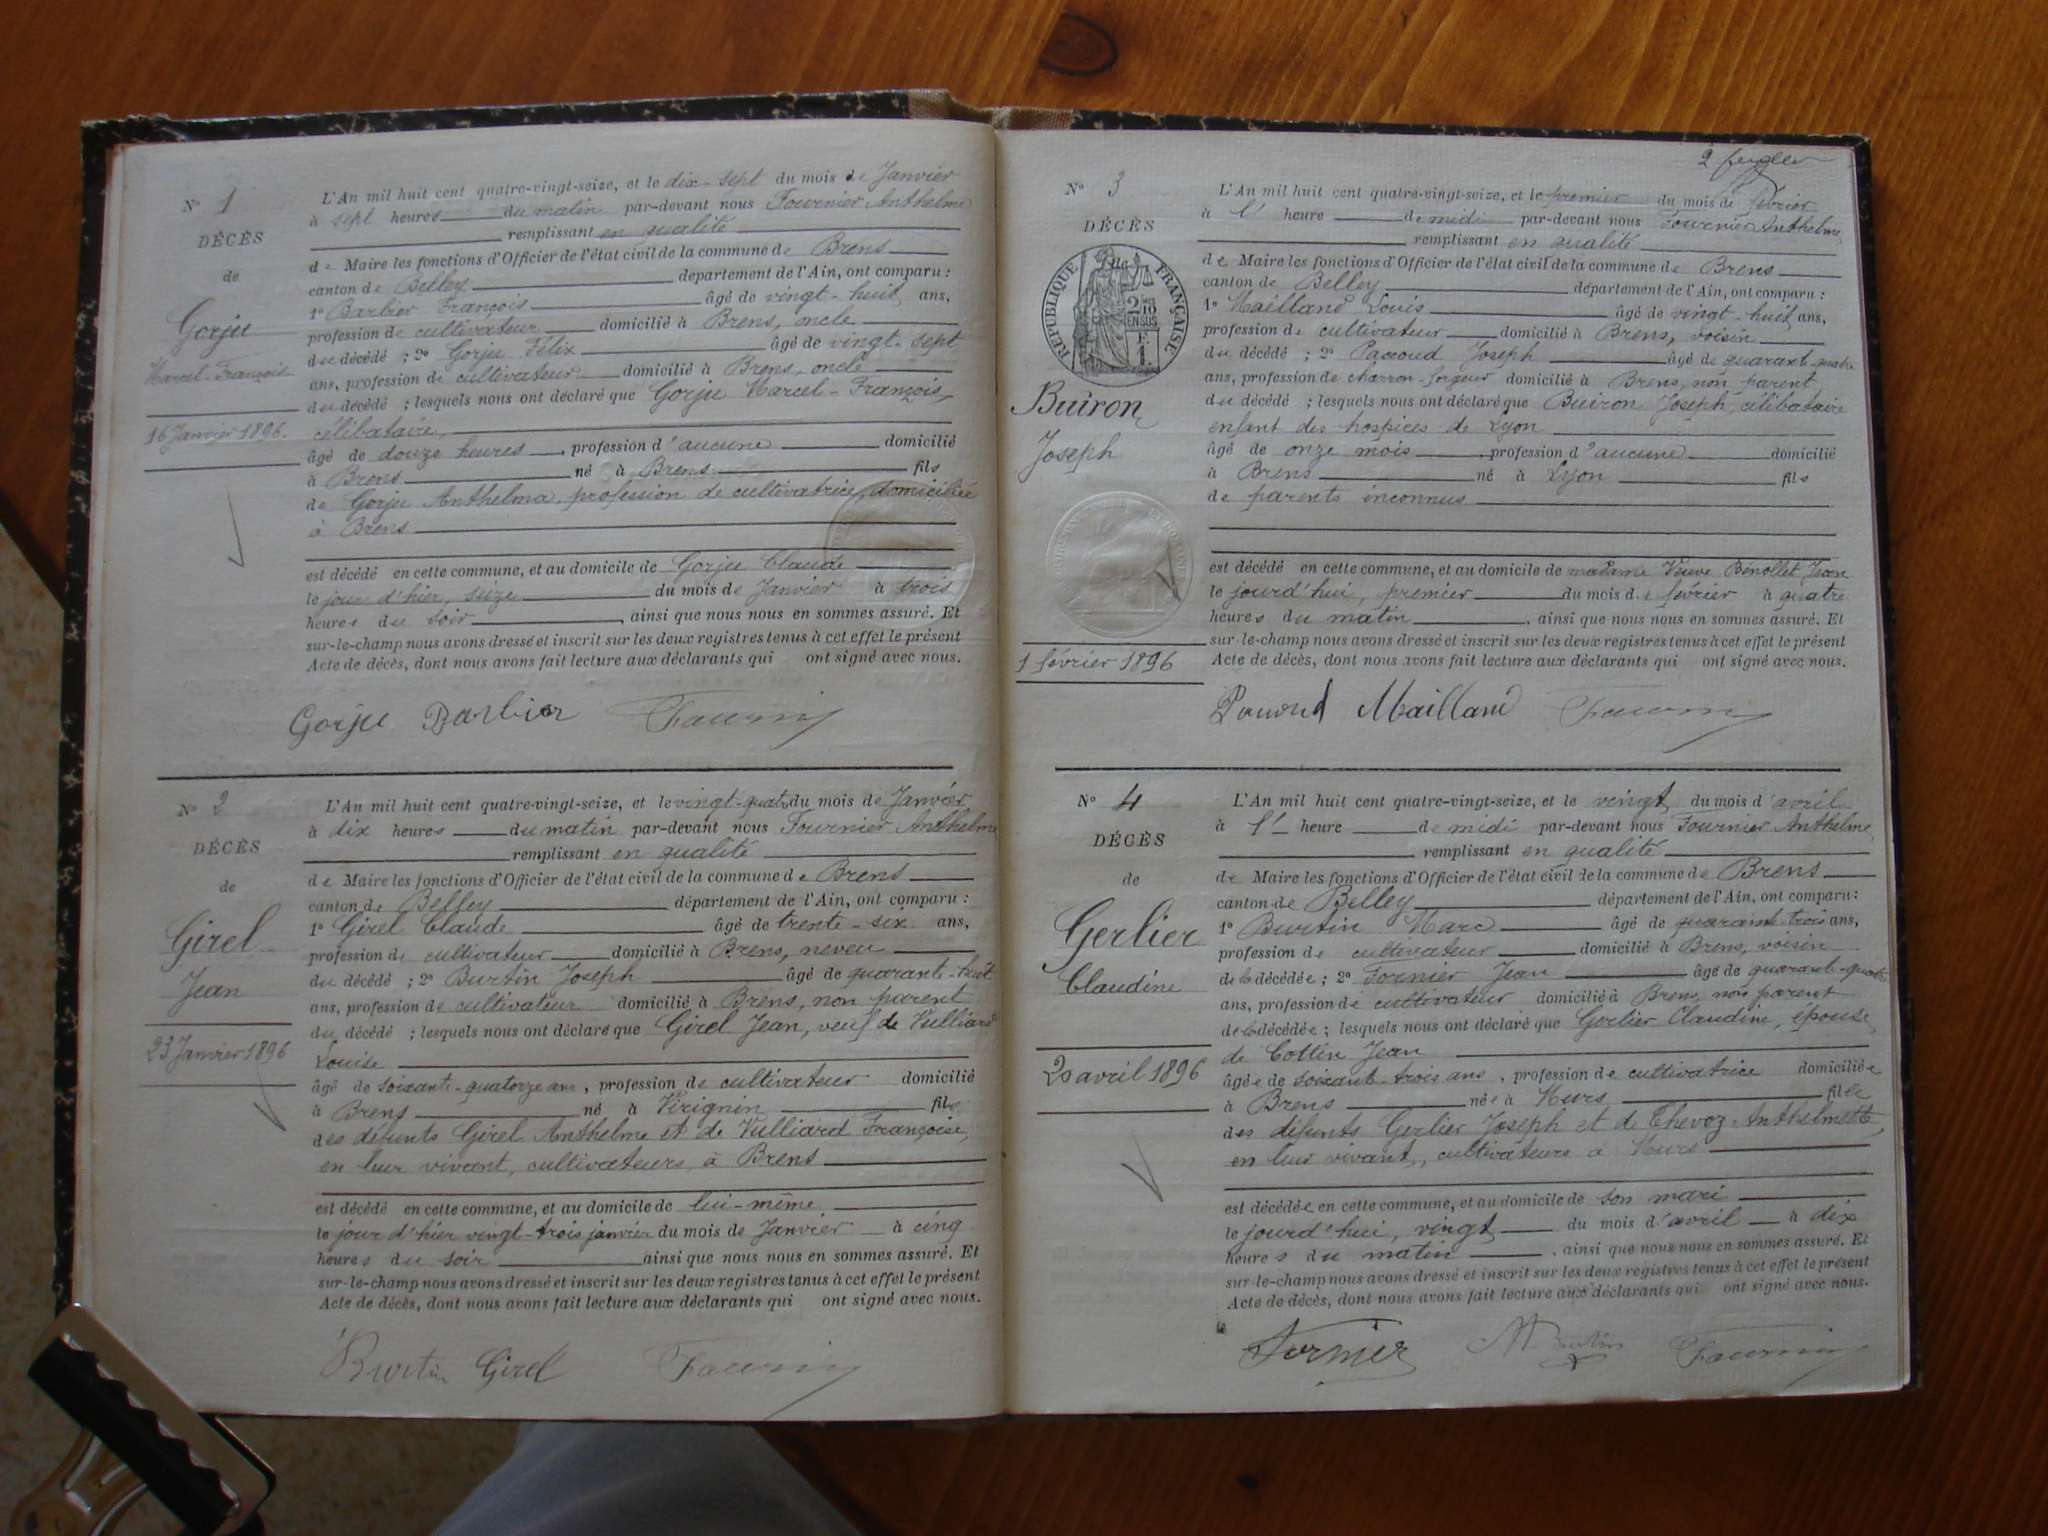 N° 1
DÉCÈS
de
Gorju
Marcel-François
16 Janvier 1896.
L'An mil huit cent quatre-vingt-seize, et le dix-sept du mois de Janvier
à sept heures du matin par-devant nous Fournier Anthelme
remplissant en qualité
de Maire les fonctions d'Officier de l'état civil de la commune de Brens
canton de Belley département de l'Ain, ont comparu :
1° Barbier François âgé de vingt-huit ans,
profession de cultivateur domicilié à Brens, oncle
du décédé ; 2° Gorju Félix âgé de vingt-sept
ans, profession de cultivateur domicilié à Brens, oncle
du décédé ; lesquels nous ont déclaré que Gorju Marcel-François,
célibataire,
âgé de douze heures, profession d'aucune domicilié
à Brens né à Brens fils
de Gorju Anthelma, profession de cultivatrice, domiciliée
à Brens
est décédé en cette commune, et au domicile de Gorju Claude
le jour d'hier, seize du mois de Janvier à trois
heures du soir, ainsi que nous nous en sommes assuré. Et
sur-le-champ nous avons dressé et inscrit sur les deux registres tenus à cet effet le présent
Acte de décès, dont nous avons fait lecture aux déclarants qui ont signé avec nous.
Gorju Barbier
N° 2
DÉCÈS
de
Girel
Jean
23 Janvier 1896
L'An mil huit cent quatre-vingt-seize, et le vingt-quatre du mois de Janvier
à dix heures du matin par-devant nous Fournier Anthelme
remplissant en qualité
de Maire les fonctions d'Officier de l'état civil de la commune de Brens
canton de Belley département de l'Ain, ont comparu :
1° Girel Claude âgé de trente-six ans,
profession de cultivateur domicilié à Brens, neveu
du décédé ; 2° Burtin Joseph âgé de quarante-huit
ans, profession de cultivateur domicilié à Brens, non parent
du décédé ; lesquels nous ont déclaré que Girel Jean, veuf de Vulliard
Louise
âgé de soixante-quatorze ans, profession de cultivateur domicilié
à Brens né à Virignin fils
des défunts Girel Anthelme et de Vulliard Françoise,
en leur vivant, cultivateurs à Brens
est décédé en cette commune, et au domicile de lui-même
le jour d'hier vingt-trois janvier du mois de Janvier à cinq
heures du soir ainsi que nous nous en sommes assuré. Et
sur-le-champ nous avons dressé et inscrit sur les deux registres tenus à cet effet le présent
Acte de décès, dont nous avons fait lecture aux déclarants qui ont signé avec nous.
Burtin Girel
N° 3
DÉCÈS
RÉPUBLIQUE FRANÇAISE
2/10 EN SUS
1 F.
Buiron
Joseph
1 février 1896
L'An mil huit cent quatre-vingt-seize, et le premier du mois de février
à l' heure de midi par-devant nous Fournier Anthelme
remplissant en qualité
de Maire les fonctions d'Officier de l'état civil de la commune de Brens
canton de Belley département de l'Ain, ont comparu :
1° Mailland Louis âgé de vingt-huit ans,
profession de cultivateur domicilié à Brens, voisin
du décédé ; 2° Joseph âgé de quarante-quatre
ans, profession de charron-forgeur domicilié à Brens, non parent
du décédé ; lesquels nous ont déclaré que Buiron Joseph, célibataire
enfant des hospices de Lyon
âgé de onze mois, profession d'aucune domicilié
à Brens né à Lyon fils
de parents inconnus
est décédé en cette commune, et au domicile de madame Veuve Bénollet Jean
le jourd'hui, premier du mois de février à quatre
heures du matin, ainsi que nous nous en sommes assuré. Et
sur-le-champ nous avons dressé et inscrit sur les deux registres tenus à cet effet le présent
Acte de décès, dont nous avons fait lecture aux déclarants qui ont signé avec nous.
Mailland
N° 4
DÉCÈS
de
Gerlier
Claudine
20 avril 1896
L'An mil huit cent quatre-vingt-seize, et le vingt du mois d'avril
à l' heure de midi par-devant nous Fournier Anthelme
remplissant en qualité
de Maire les fonctions d'Officier de l'état civil de la commune de Brens
canton de Belley département de l'Ain, ont comparu :
1° Burtin Marc âgé de quarante trois ans,
profession de cultivateur domicilié à Brens, voisin
de la décédée ; 2° Fornier Jean âgé de quarante-quatre
ans, profession de cultivateur domicilié à Brens, non parent
de la décédée ; lesquels nous ont déclaré que Gerlier Claudine, épouse
de Cottin Jean
âgée de soixante-trois ans, profession de cultivatrice domiciliée
à Brens née à Murs fille
des défunts Gerlier Joseph et de Thevoz Anthelmette,
en leur vivant, cultivateurs à Murs
est décédée en cette commune, et au domicile de son mari
le jourd'hui, vingt du mois d'avril à dix
heures du matin, ainsi que nous nous en sommes assuré. Et
sur-le-champ nous avons dressé et inscrit sur les deux registres tenus à cet effet le présent
Acte de décès, dont nous avons fait lecture aux déclarants qui ont signé avec nous.
Fornier M Burtin